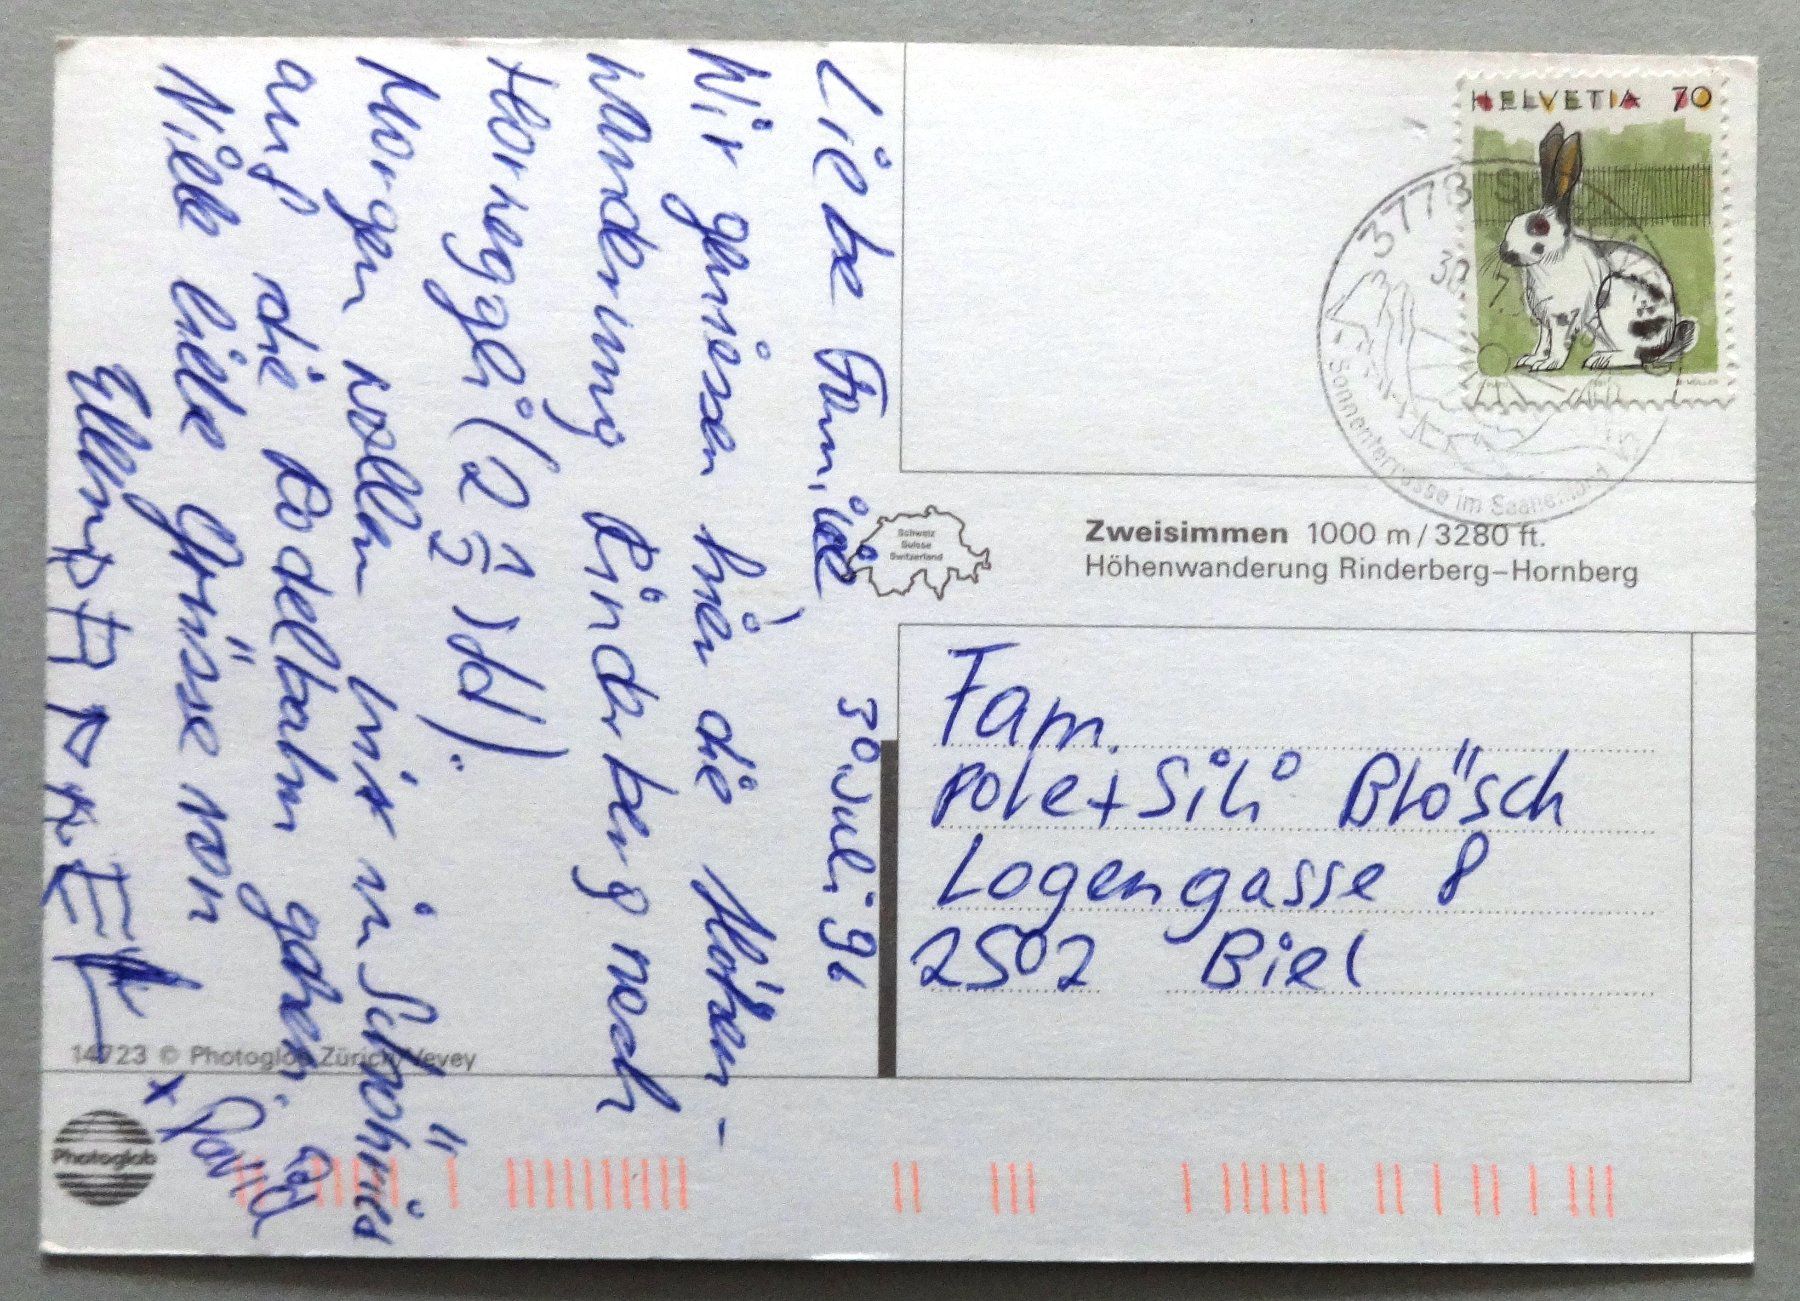 HELVETIA 70
3778
30. 7.
Sonnenterrasse im Saanenland
Schweiz
Suisse
Switzerland
Zweisimmen 1000 m / 3280 ft.
Höhenwanderung Rinderberg–Hornberg
Liebe Familie 30. Juli 96
Wir geniessen hier die Höhen-
wanderung Rinderberg nach
Horneggli (2 1/2 Std).
Morgen wollen wir in Schönried
auf die Rodelbahn gehen.
Viele liebe Grüsse von
+ David
Fam.
Pole + Sili Blösch
Logengasse 8
2502 Biel
14723 © Photoglob Zürich/Vevey
Photoglob